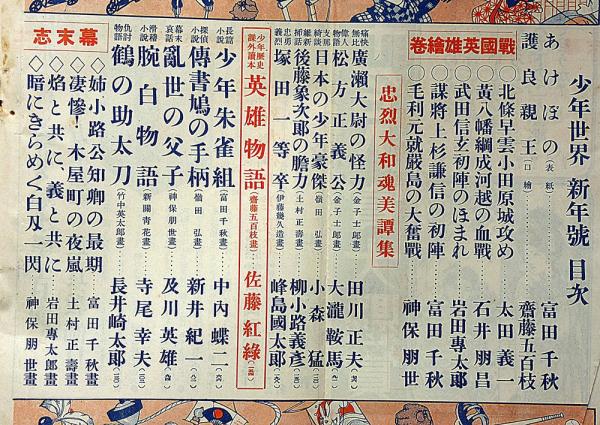 少年世界 新年號 目次
あけぼの(表紙)……富田千秋
護良親王(口繪)……齋藤五百枝
戰國英雄繪卷
○北條早雲小田原城攻め……太田義一
○黄八幡綱成河越の血戰……石井朋昌
○武田信玄初陣のほまれ……岩田專太郎
○謀將上杉謙信の初陣……富田千秋
○毛利元就嚴島の大奮戰……神保朋世
忠烈大和魂美譚集
痛快無比 廣瀬大尉の怪力(金子士郎畫)……田川正夫
偉人物語 松方正義公(金子士郎畫)……大瀧鞍馬
維新綺談 日本の少年豪傑(嶺田弘畫)……小森猛
支那插話 後藤象次郎の膽力(土村正壽畫)……柳小路義彦
忠勇義烈 塚田一等卒(伊藤幾久造畫)……峰島國太郎
少年歴史課外讀本 英雄物語(齋藤五百枝畫)……佐藤紅緑
長篇小説 少年朱雀組(富田千秋畫)……中内蝶二
探偵小説 傳書鳩の手柄(嶺田弘畫)……新井紀一
幕末哀話 亂世の父子(神保朋世畫)……及川英雄
滑稽小説 腕白物語(新關青花畫)……寺尾幸夫
仇討物語 鶴の助太刀(竹中英太郎畫)……長井崎太郎
幕末志
◇姉小路公知卿の最期……富田千秋畫
◇凄慘!木屋町の夜嵐……土村正壽畫
◇焰と共に義と共に……岩田專太郎畫
◇暗にきらめく白刄一閃……神保朋世畫